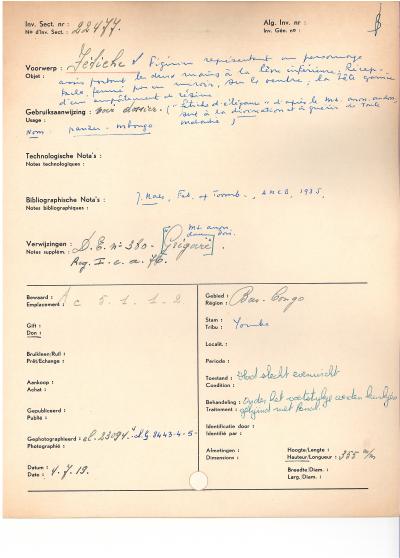 Inv. Sect. nr : 22477.
N° d'Inv. Sect. :
Alg. Inv. nr :
Inv. Gén. no :
Voorwerp : Fétiche Figurine représentant un personnage
Objet : assis portant les deux mains à la lèvre inférieure. Récep-
tacle, fermé par un miroir, sur le ventre, la tête garnie
d'un empâtement de résine
Gebruiksaanwijzing : voir dossier. ("
" d'après le Ms. anon.
Usage : sert à la divination et à guérir de toute
maladie )
Nom :
mbongo
Technologische Nota's :
Notes technologiques :
Bibliographische Nota's : J. Maes, Fet. of Toomb., AMCB, 1935.
Notes bibliographiques :
Verwijzingen : D. E. n° 380 -
Ms. anon.
Notes supplém. :
Reg. I. c. a. 76.
Bewaard : c 5. 1. 1. 2
Emplacement :
Gift :
Don :
Bruikleen/Ruil :
Prêt/Echange :
Aankoop :
Achat :
Gepubliceerd :
Publié :
Gephotographieerd : cl. 23094
8443-4-5-
Photographié :
Datum : 4. 7. 19.
Date :
Gebied : Bas-Congo
Région :
Stam : Yombe
Tribu :
Localit. :
Periode :
Toestand :
Condition :
Behandeling :
Traitement :
Identificatie door :
Identifié par :
Afmetingen :
Dimensions :
Hoogte/Lengte : 355 m/m
Hauteur/Longueur :
Breedte/Diam. :
Larg./Diam. :